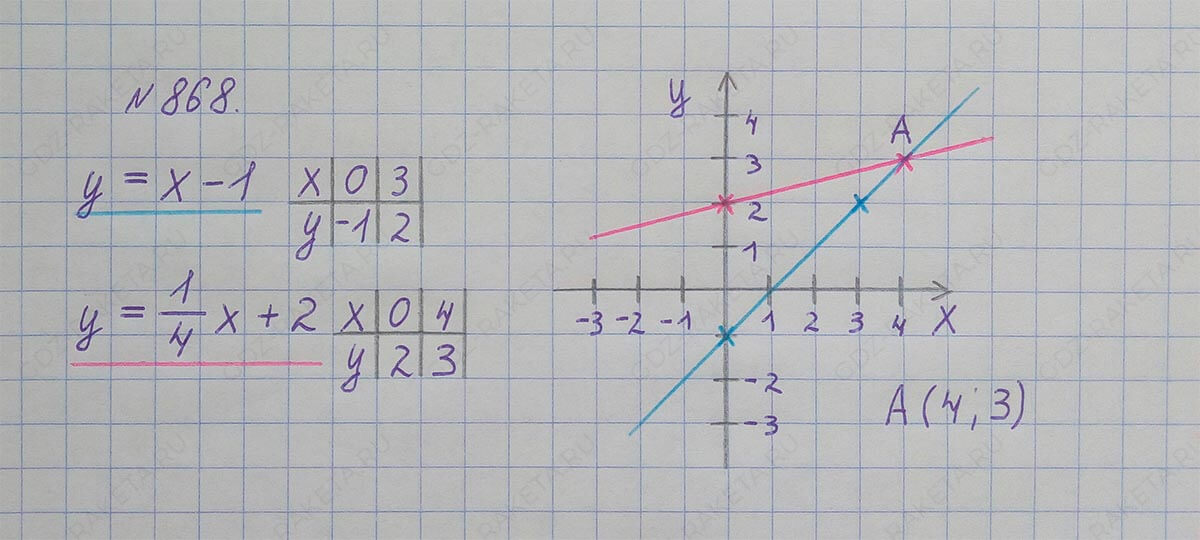 №868.
y = x - 1
x 0 3
y -1 2
y = 1/4 x + 2
x 0 4
y 2 3
y
4
3
2
1
-3 -2 -1 1 2 3 4 x
-2
-3
A
A(4; 3)
GDZ-RAKETA.RU